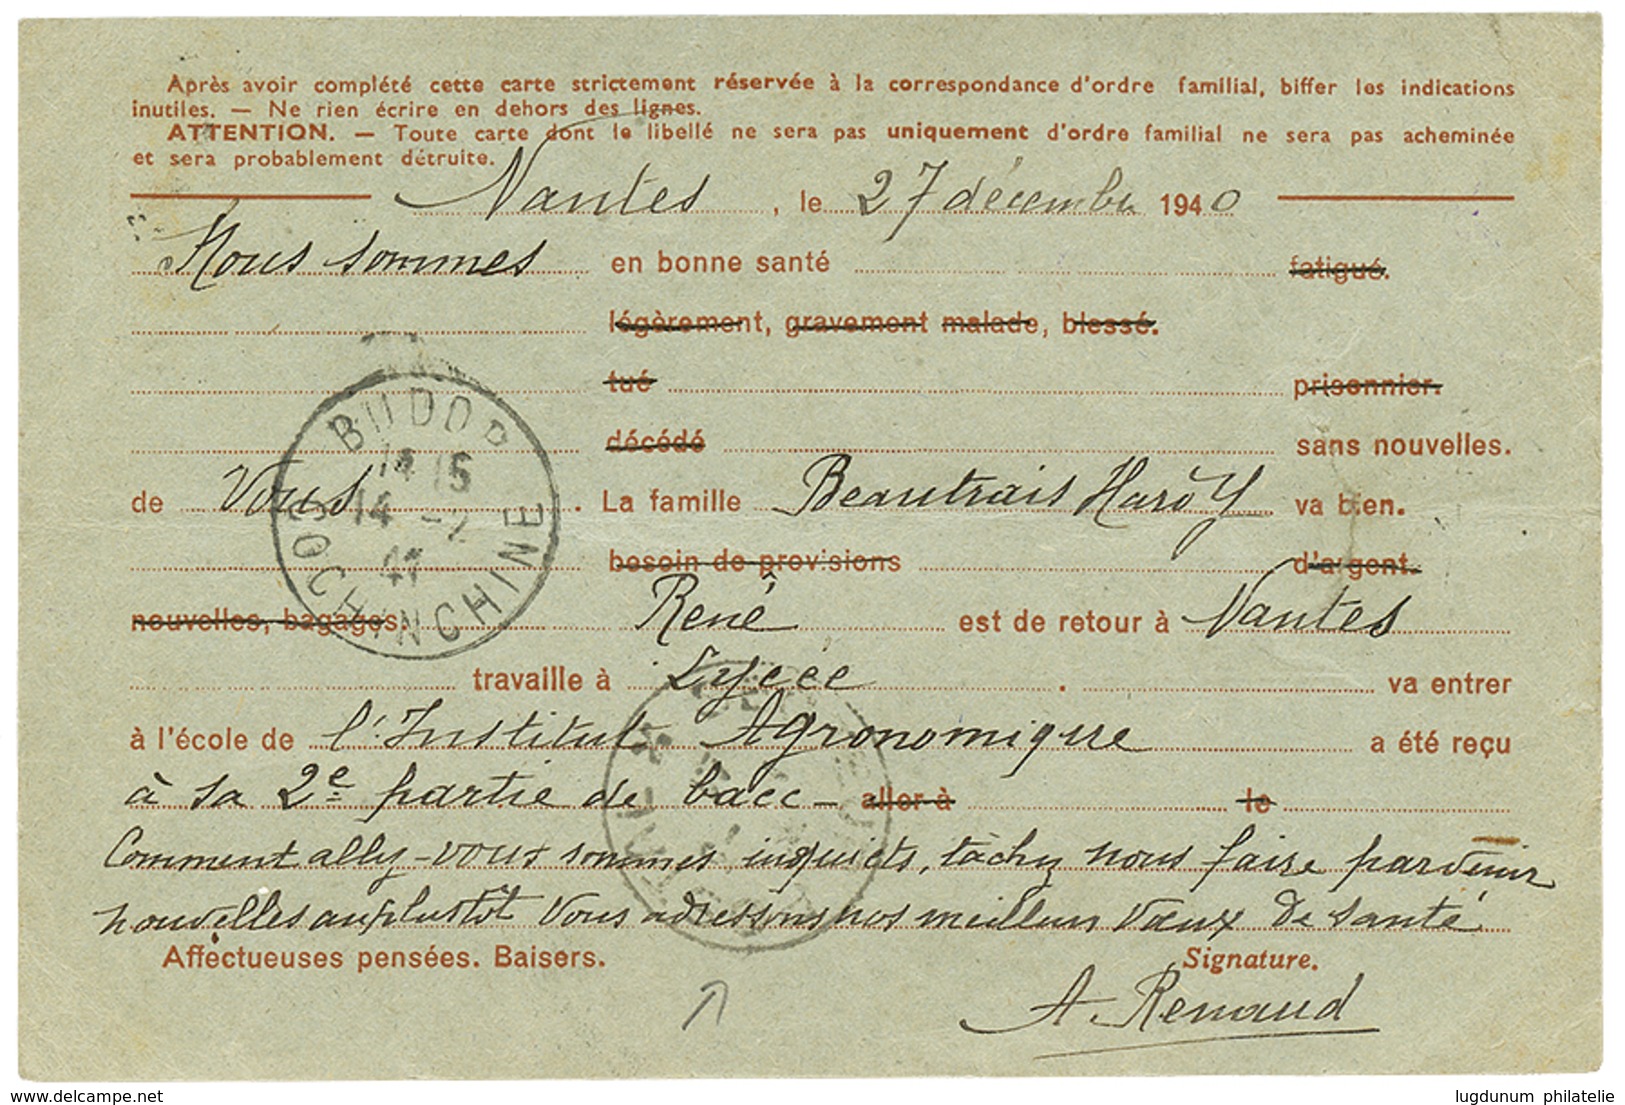 Après avoir complété cette carte strictement réservée à la correspondance d'ordre familial, biffer les indications
inutiles. — Ne rien écrire en dehors des lignes.
ATTENTION. — Toute carte dont le libellé ne sera pas uniquement d'ordre familial ne sera pas acheminée
et sera probablement détruite.
Nantes, le 27 décembre 1940
Nous sommes en bonne santé fatigué.
légèrement, gravement malade, blessé.
tué prisonnier.
décédé sans nouvelles.
de Vous. La famille Beautrais Haroy va bien.
besoin de provisions d'argent.
nouvelles, bagages. René est de retour à Nantes
travaille à Lycée. va entrer
à l'école de l'Institut Agronomique a été reçu
à sa 2e partie de bacc — aller à le
Comment allez-vous sommes inquiets, tâchez nous faire parvenir
nouvelles au plus tôt Vous adressons nos meilleurs Vœux de santé
Affectueuses pensées. Baisers. Signature.
A. Renaud
BUDOP
14 15
14 -2
41
COCHINCHINE
www.delcampe.net
lugdunum philatelie